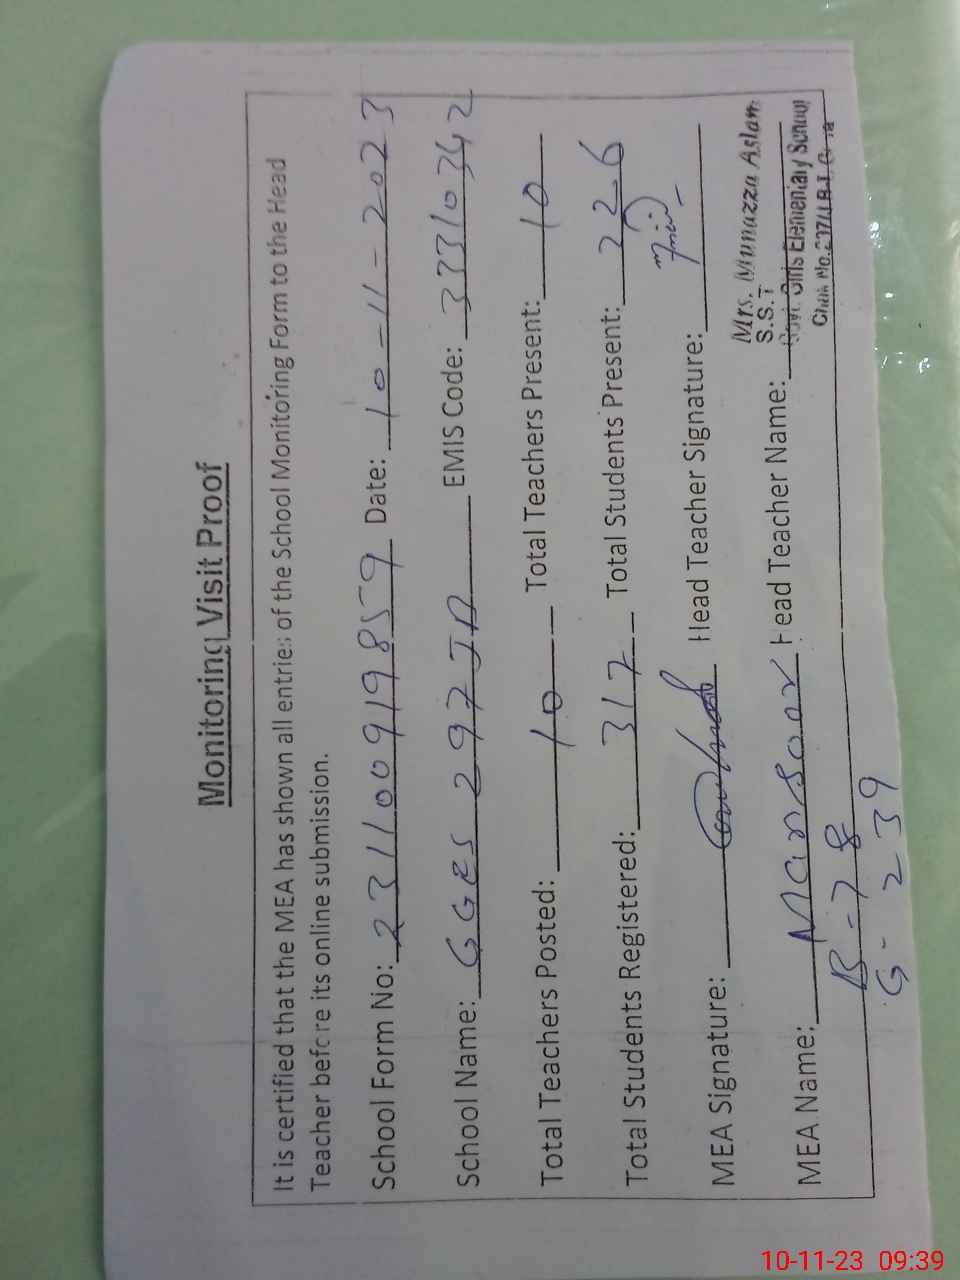 Monitoring Visit Proof
It is certified that the MEA has shown all entries of the School Monitoring Form to the Head
Teacher before its online submission.
School Form No: 23110091985 9 Date: 10-11-2023
School Name: GGES 297 JB EMIS Code: 33310342
Total Teachers Posted: 10 Total Teachers Present: 10
Total Students Registered: 317 Total Students Present: 226
MEA Signature: Head Teacher Signature:
Mrs. Munazza Aslam
S.S.T
MEA Name: Mansoor Head Teacher Name: Govt. Girls Elementary School
Chak No. J.B.
B-78
G-239
10-11-23 09:39